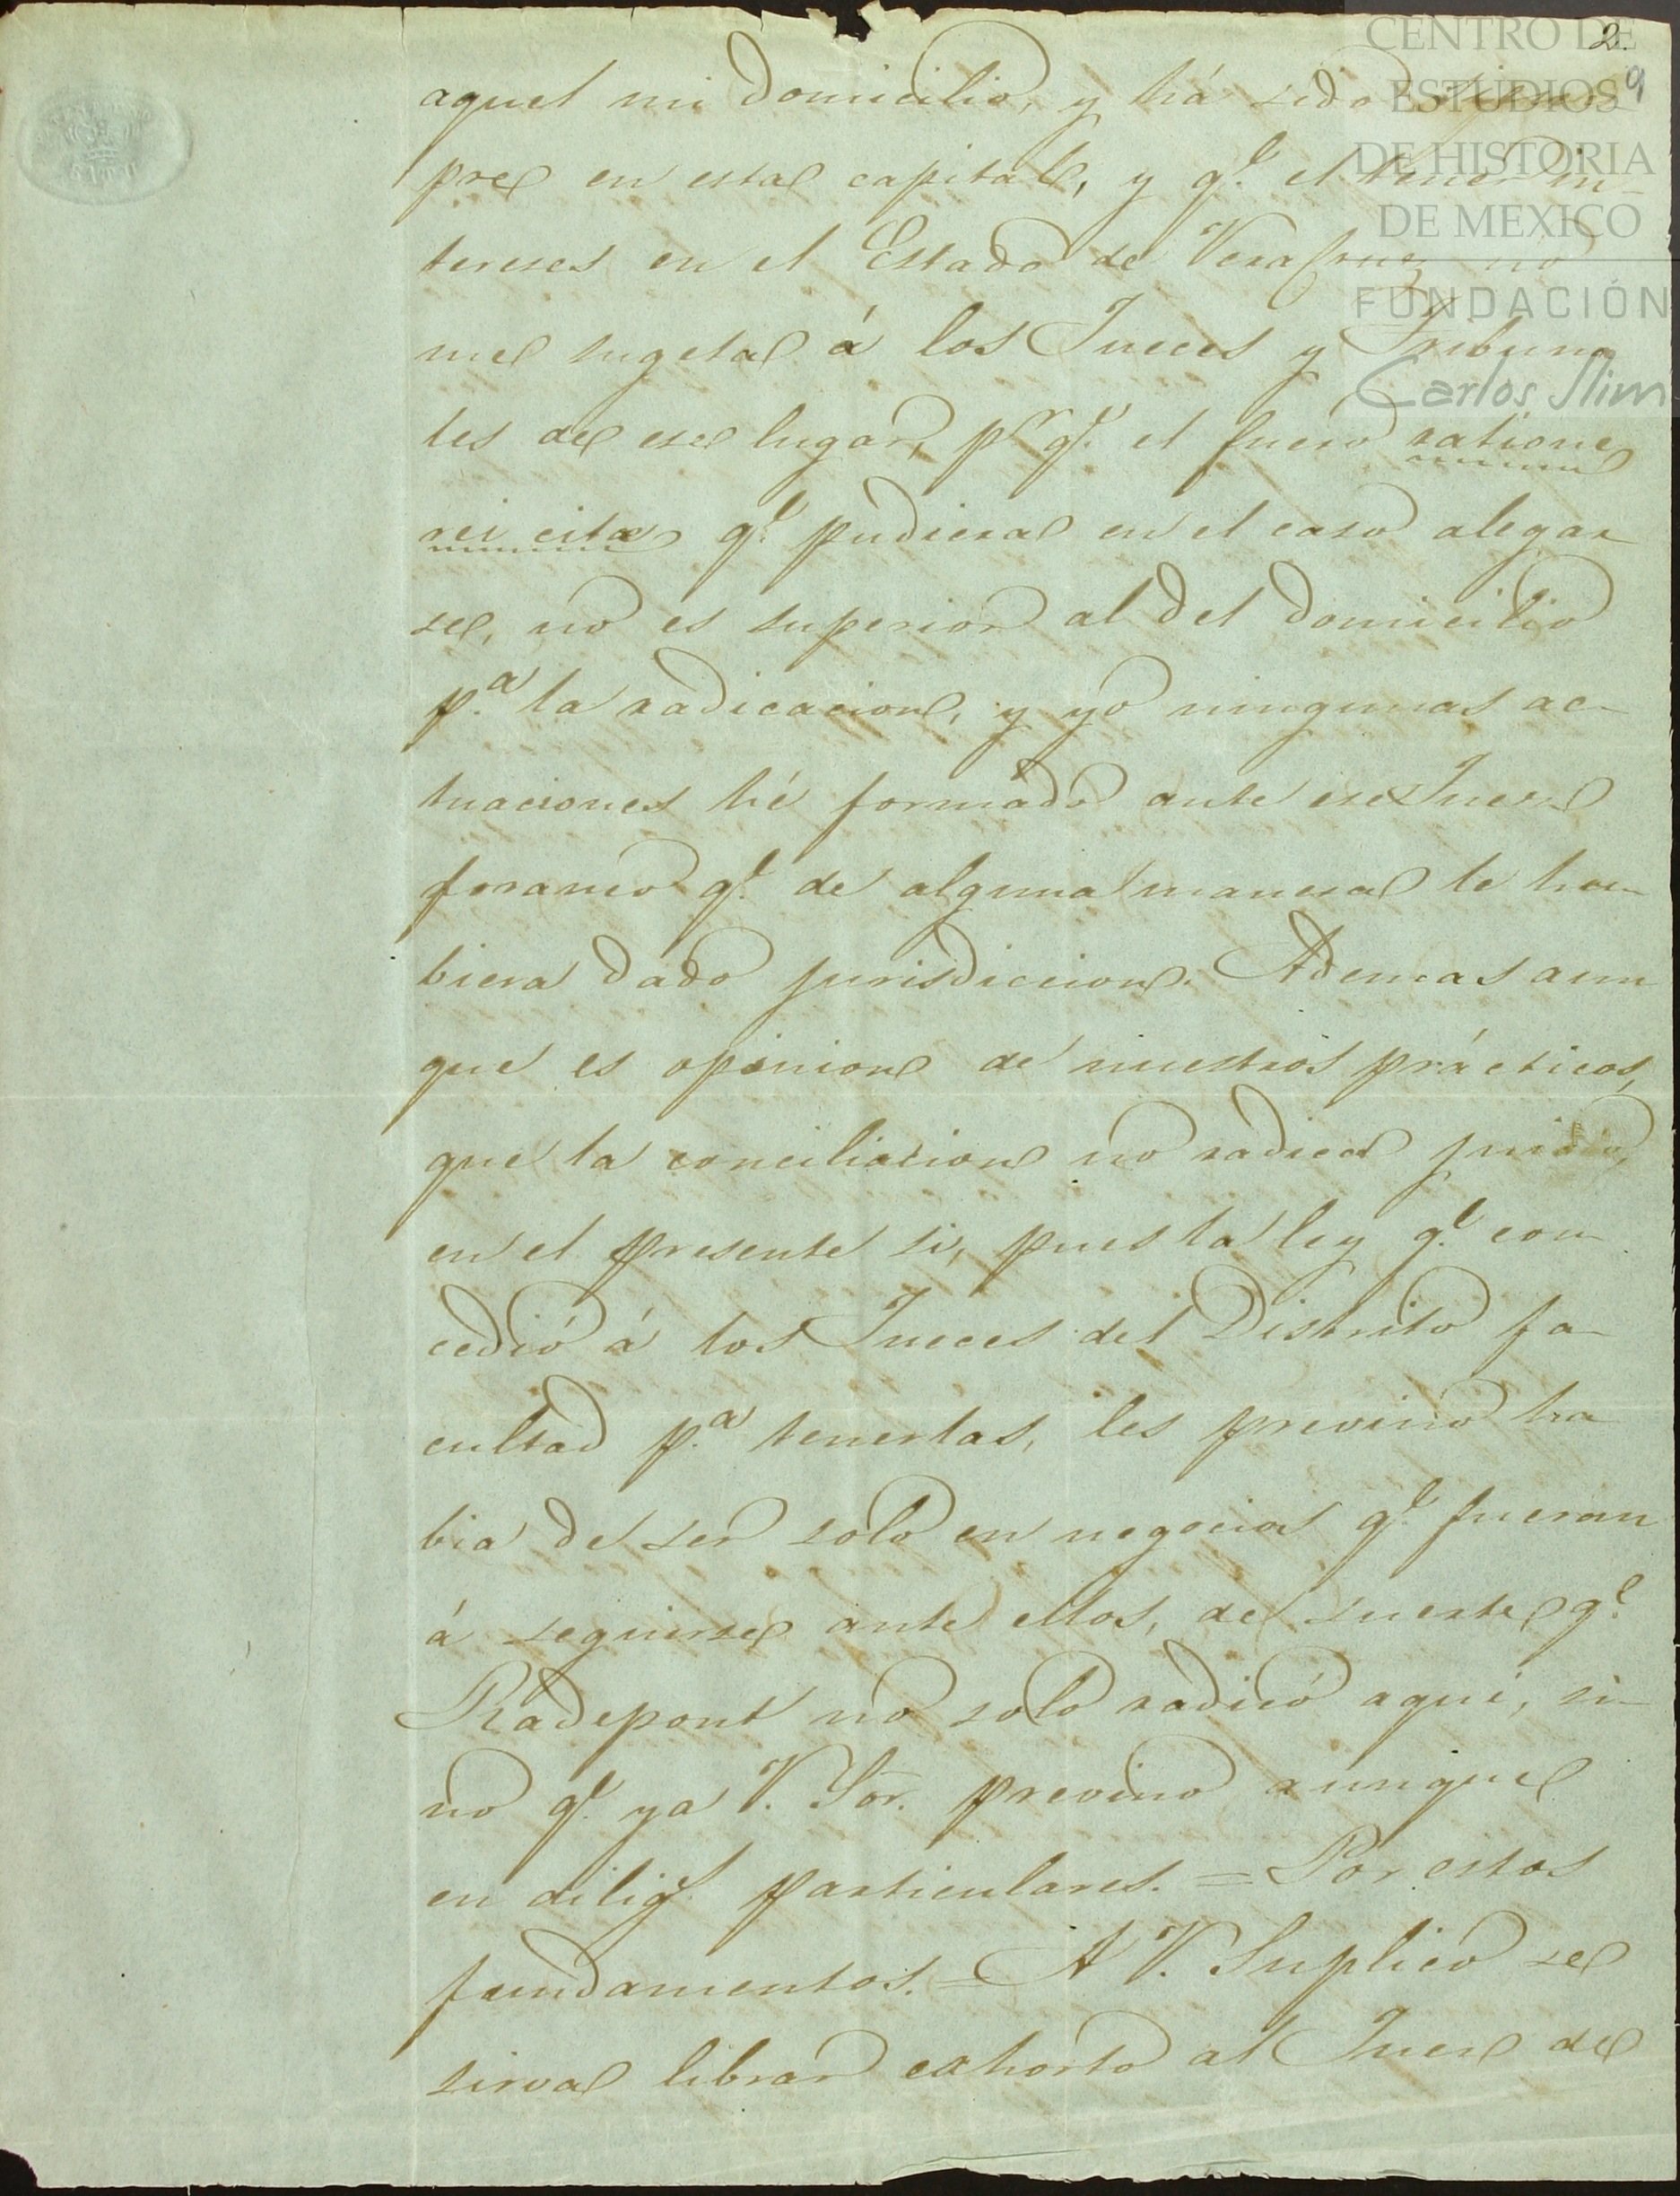 2.
9
CENTRO DE
ESTUDIOS
DE HISTORIA
DE MEXICO
FUNDACIÓN
Carlos Slim
aquel mi domicilio, y há sido siem-
pre en esta capital, y q.e el tener in-
tereses en el Estado de Vera Cruz no
me sugeta á los Jueces y Tribuna
les de ese lugar, p.r q.e el fuero ratione
rei citæ q.e pudiera en el caso alegar
se, no es superior al del domicilio
p.a la radicacion, y yo ningunas ac-
tuaciones hé formado ante ese Juez
foraneo q.e de alguna manera le hu-
biera dado jurisdiccion. Ademas aun
que es opinion de nuestros prácticos,
que la conciliacion no radica juicio,
en el presente si, pues la ley q.e con-
cedió á los Jueces del Distrito fa-
cultad p.a tenerlas, les previno ha
bia de ser solo en negocios q.e fueran
á seguirse ante ellos, de suerte q.e
Radepont no solo radicó aqui, si-
no q.e ya V. Sor. previno aunque
en dilig.s particulares. = Por estos
fundamentos. = A V. Suplico se
sirva librar exhorto al Juez de